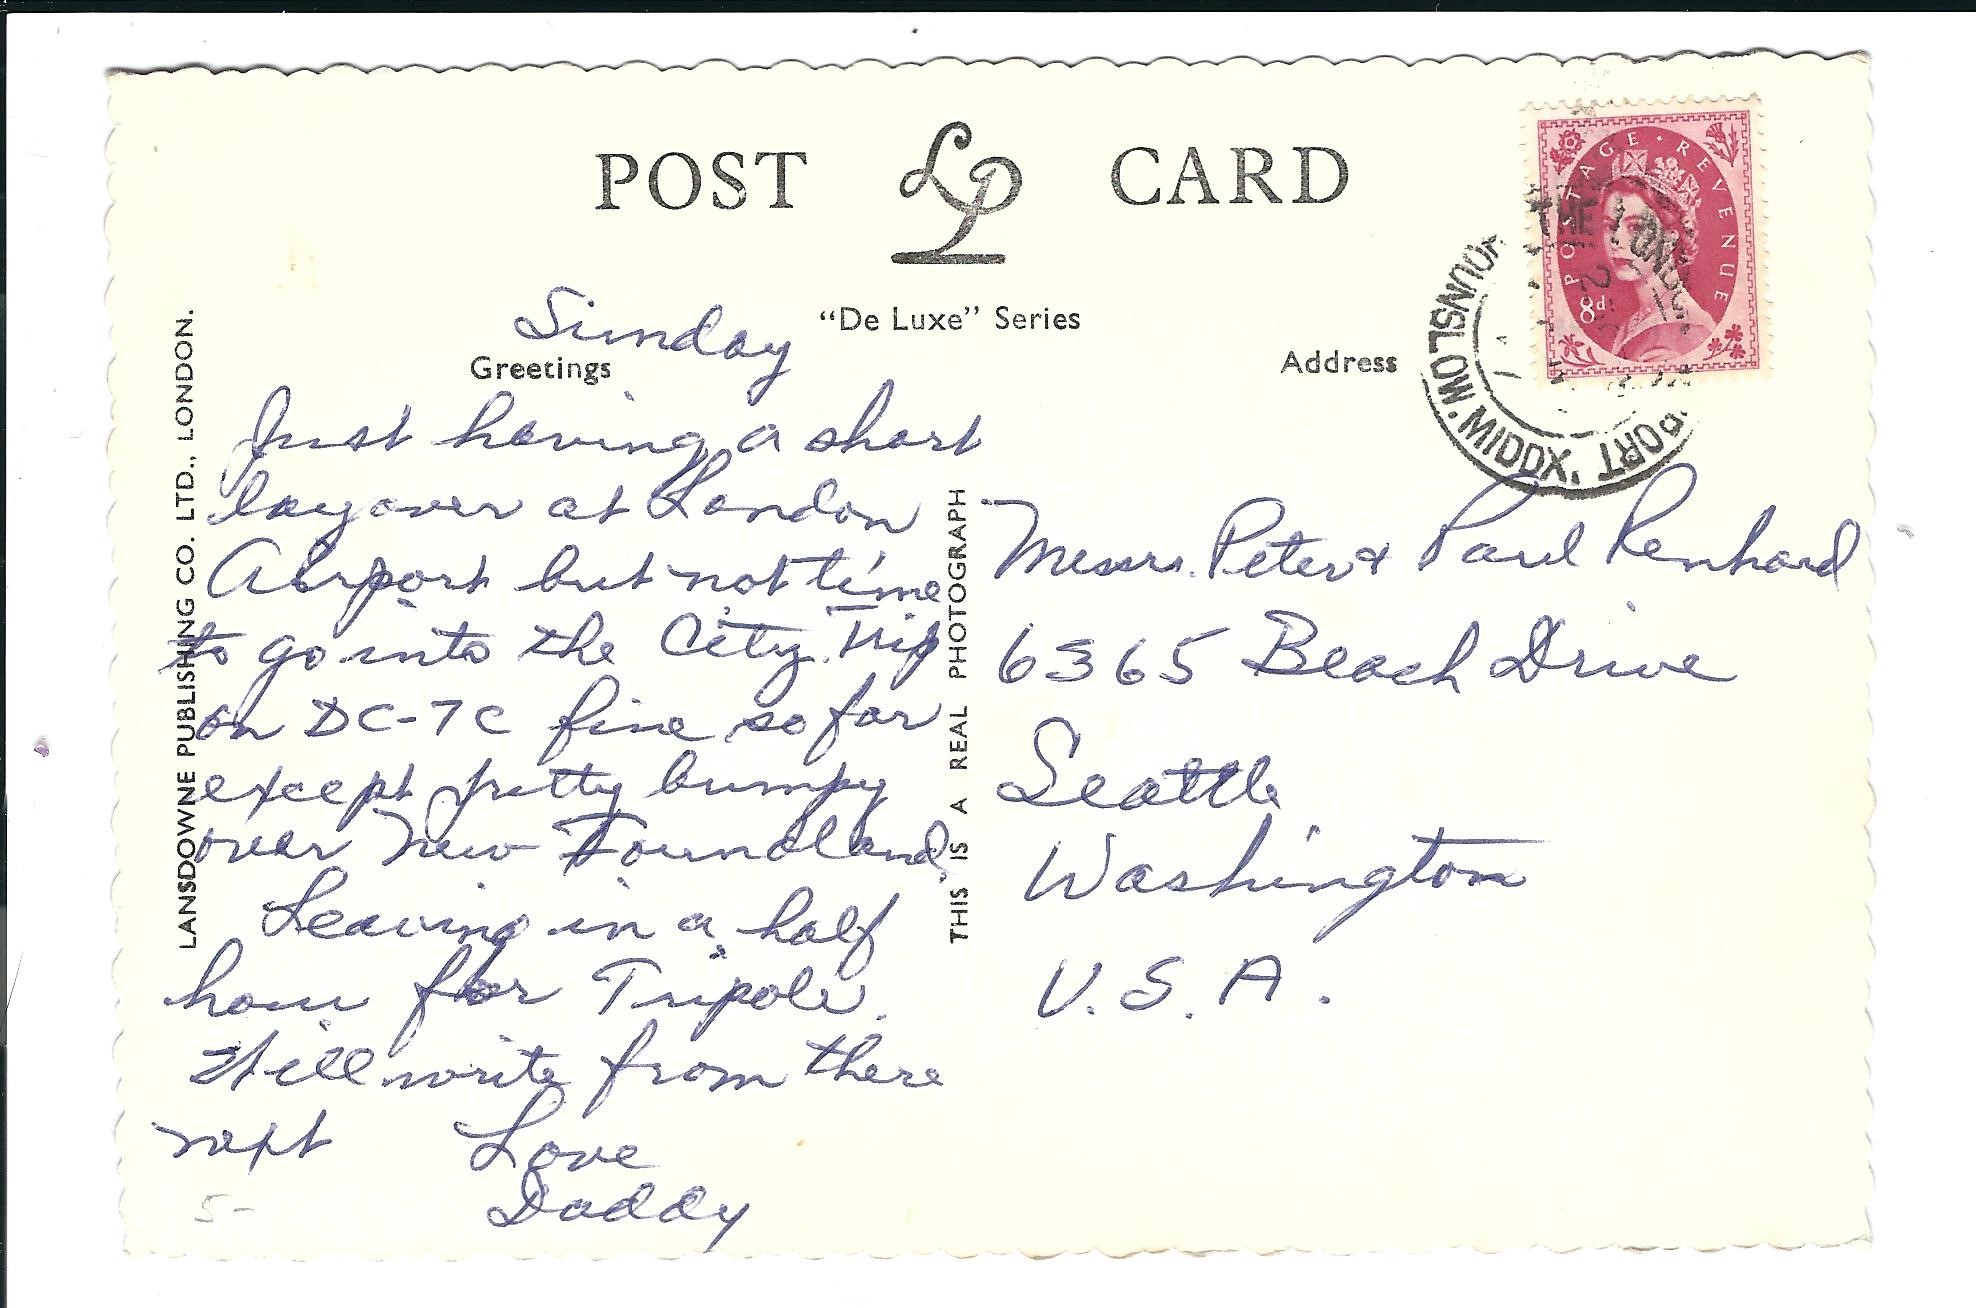 POST LP CARD
"De Luxe" Series
Greetings
Address
Sunday
Just having a short
layover at London
Airport but not time
to go into the City. Trip
on DC-7C fine so far
except pretty bumpy
over New Foundland.
Leaving in a half
hour for Tripoli.
Will write from there
next
Love
Daddy
5-
LANSDOWNE PUBLISHING CO. LTD., LONDON.
THIS IS A REAL PHOTOGRAPH
Messrs. Peter & Paul Renhard
6365 Beach Drive
Seattle
Washington
U.S.A.
POSTAGE REVENUE
8d
LONDON
PORT
HOUNSLOW. MIDDX.